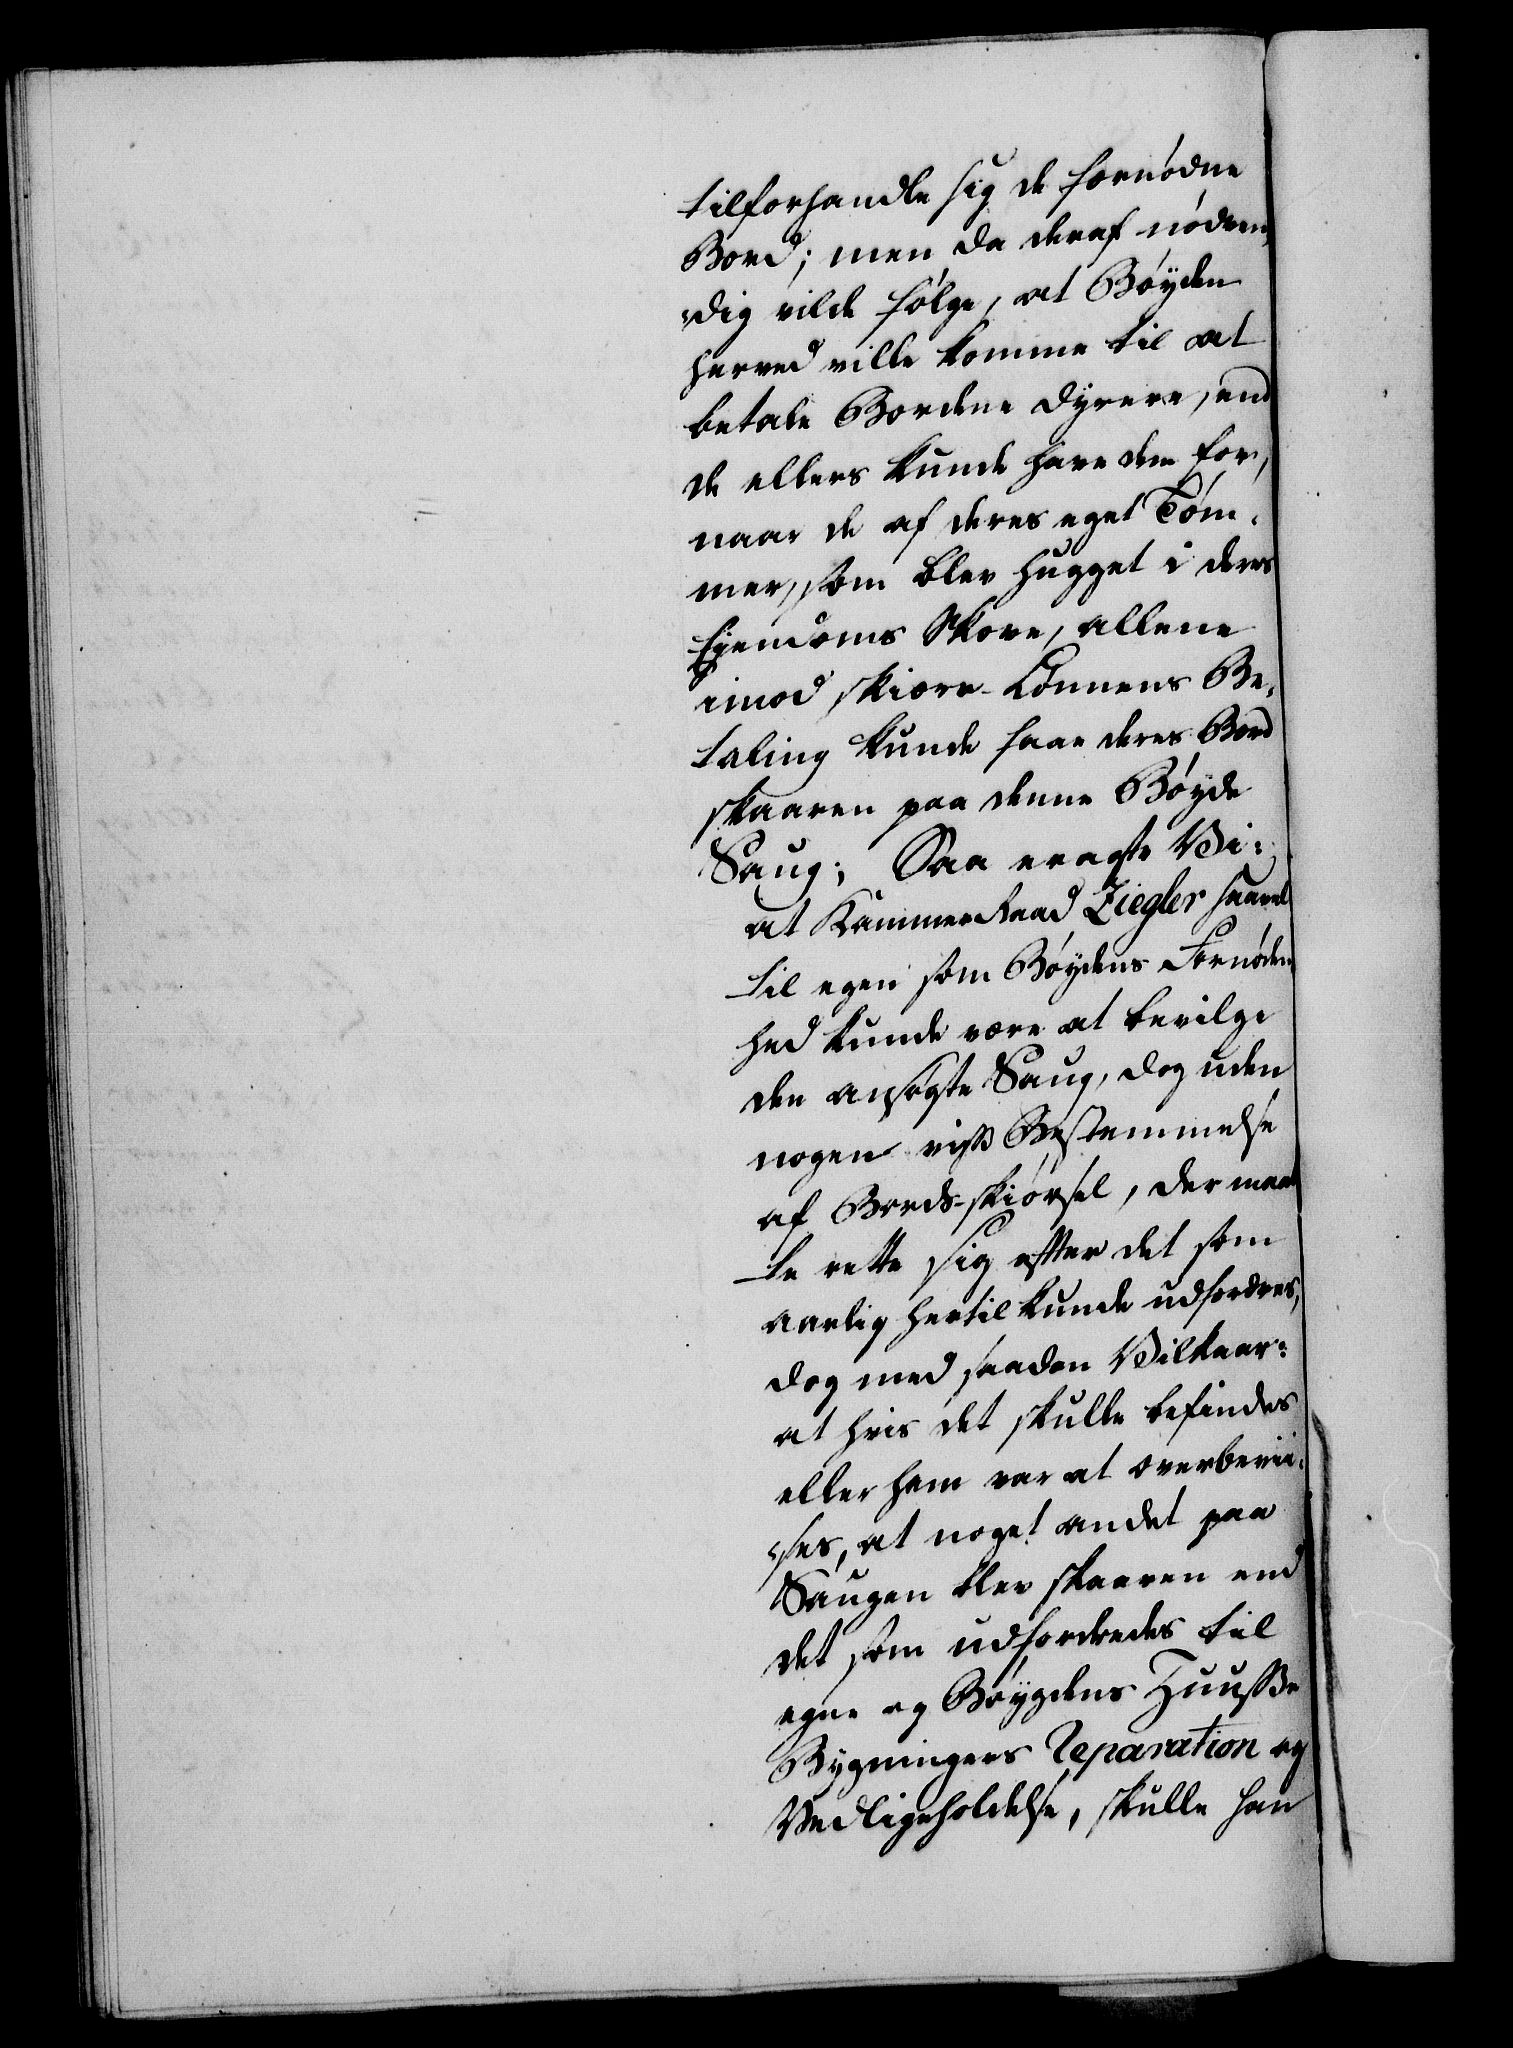 tilforhandle sig de fornødne
Bord; men da deraf nødven,
dig vilde følge, at Bøyden
herved ville komme til at
betale Bordene dyrere, end
de ellers kunde have dem for,
naar de af deres eget Tøm,
mer, som blev hugget i deres
Ejendoms Skove, allene
imod skiære-Lønnens Be,
taling kunde faae deres Bord
skaaren paa denne Bøyde
Saug; Saa eragte Vi:
at Kammerraad Ziegler saavel
til egen som Bøydens Fornøden,
hed kunde være at bevilge
den ansøgte Saug, dog uden
nogen viss Bestemmelse
af Bords-skiørsel, der maat
te rette sig efter det som
aarlig hertil kunde udfordres,
dog med saadan Vilkaar:
at hvis det skulle befindes
eller ham var at overbevii,
ses, at noget andet paa
Saugen blev skaaren end
det som udfordredes til
egne og Bøygdens Huusse
Bygningers Reparation og
Vedligeholdelse, skulle han